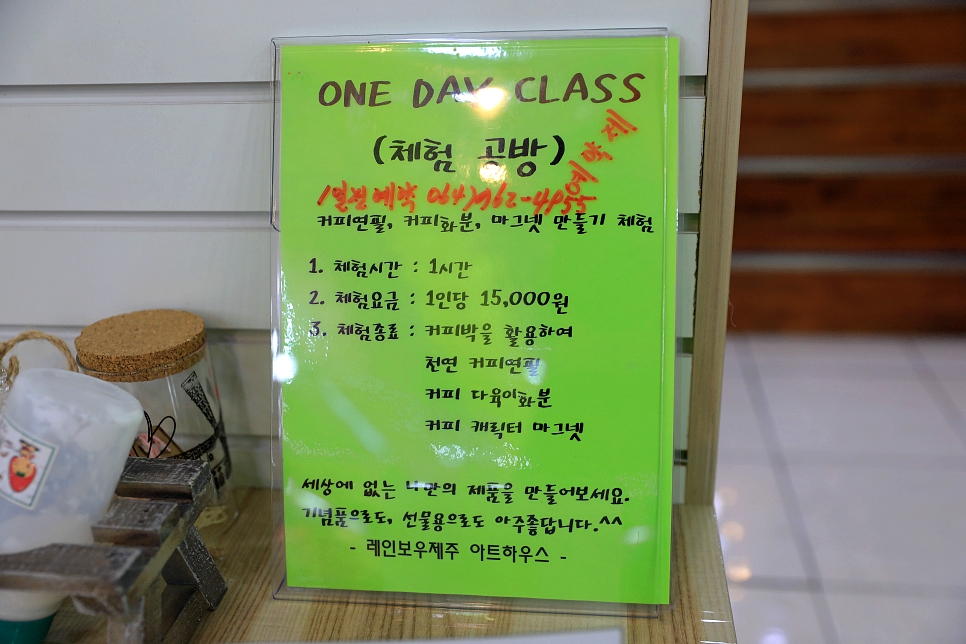 ONE DAY CLASS
(체험 공방)
예약제
1일전 예약 064)762-4955
커피연필, 커피화분, 마그넷 만들기 체험
1. 체험시간 : 1시간
2. 체험요금 : 1인당 15,000원
3. 체험종료 : 커피박을 활용하여
천연 커피연필
커피 다육이화분
커피 캐릭터 마그넷
세상에 없는 나만의 제품을 만들어보세요.
기념품으로도, 선물용으로도 아주좋답니다.^^
- 레인보우제주 아트하우스 -